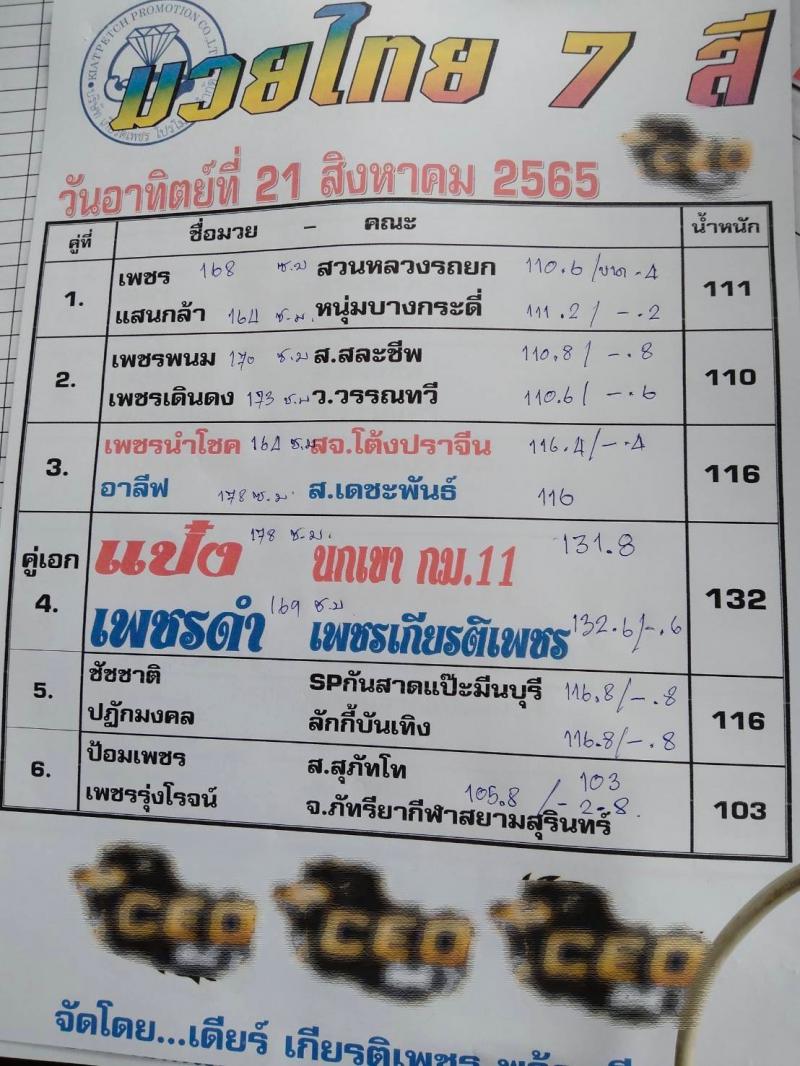 KIATPETCH PROMOTION CO.,LT
มวยไทย 7 สี
CEO
วันอาทิตย์ที่ 21 สิงหาคม 2565
คู่ที่ ชื่อมวย - คณะ น้ำหนัก
1. 111
เพชร 168 ซ.ม สวนหลวงรถยก 110.6/ขาด -.4
แสนกล้า 164 ซ.ม. หนุ่มบางกระดี่ 111.2/ -.2
2. 110
เพชรพนม 170 ซ.ม ส.สละชีพ 110.8/ -.8
เพชรเดินดง 173 ซ.ม ว.วรรณทวี 110.6/ -.6
3. 116
เพชรนำโชค 164 ซ.ม สจ.โต้งปราจีน 116.4/-.4
อาลีฟ 178 ซ.ม. ส.เดชะพันธ์ 116
คู่เอก 4. 132
แป๋ง 178 ซ.ม. นกเขา กม.11 131.8
เพชรดำ 169 ซ.ม เพชรเกียรติเพชร 132.6/-.6
5. 116
ชัชชาติ SPกันสาดแป๊ะมีนบุรี 116.8/-.8
ปฏักมงคล ลักกี้บันเทิง 116.8/-.8
6. 103
ป้อมเพชร ส.สุภัทโท 103
เพชรรุ่งโรจน์ จ.ภัทรียากีฬาสยามสุรินทร์ 105.8 /-2.8
CEO CEO CEO
จัดโดย...เดียร์ เกียรติเพชร